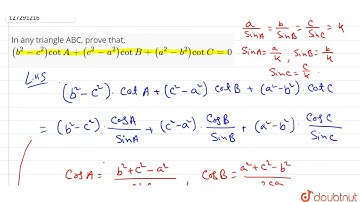 127291216
In any triangle ABC, prove that,
(b² − c²)cot A + (c² − a²)cot B + (a² − b²)cot C = 0
a/SinA = b/SinB = c/SinC = k
SinA = a/k, SinB = b/k
SinC = c/k
LHS
(b²-c²). cot A + (c²-a²) cot B + (a²-b²). cot C
= (b²-c²). CosA/SinA + (c²-a²). CosB/SinB + (a²-b²). CosC/SinC
CosA = b²+c²-a² , CosB = a²+c²-b²
doubtnut